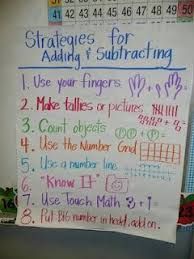 41 42 43 50
Strategies for
Adding & Subtracting
1. Use your fingers
2. Make tallies or pictures
3. Count objects
4. Use the Number Grid
5. Use a number line
6. "Know It"
7. Use Touch Math 3 + 1
8. Put BIG number in head, add on.